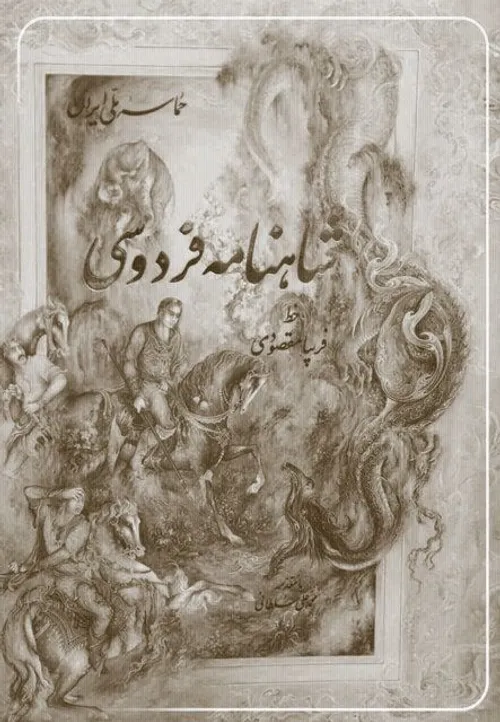 حماسه ملی ایران
شاهنامه فردوسی
خط
فریبا مقصودی
مقدمه
محمدعلی سلطانی